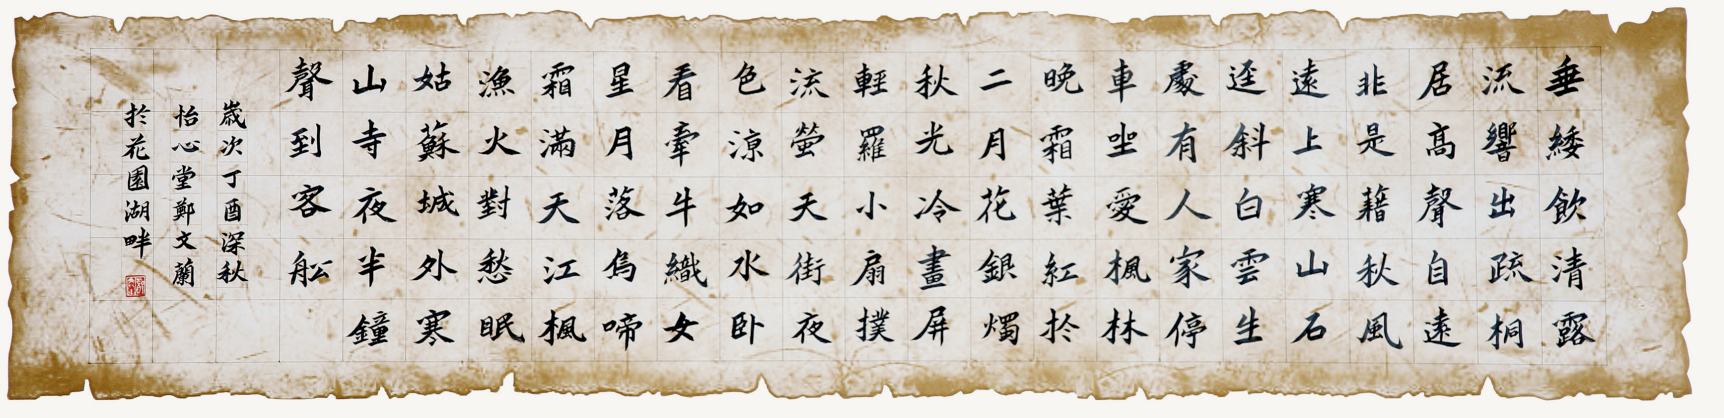 垂緌飲清露
流響出疏桐
居高聲自遠
非是藉秋風
遠上寒山石
逕斜白雲生
處有人家停
車坐愛楓林
晚霜葉紅於
二月花銀燭
秋光冷畫屏
輕羅小扇撲
流螢天街夜
色涼如水臥
看牽牛織女
星月落烏啼
霜滿天江楓
漁火對愁眠
姑蘇城外寒
山寺夜半鐘
聲到客船
歲次丁酉深秋
怡心堂鄭文蘭
於花園湖畔